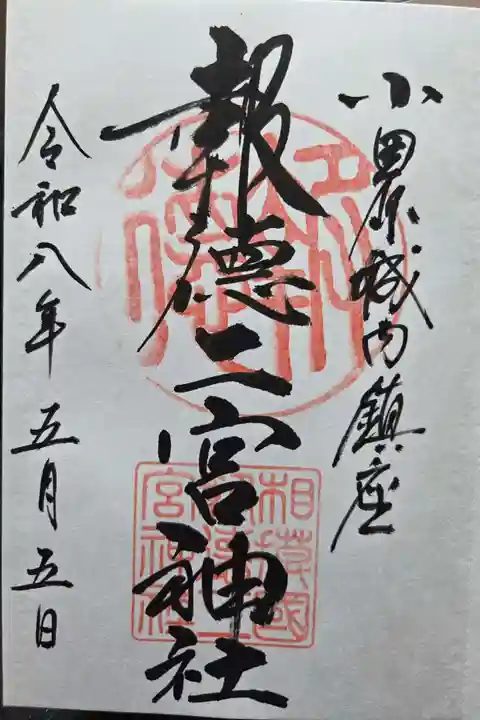 小田原城内鎮座
報徳二宮神社
令和八年五月五日
相模國
宮神社